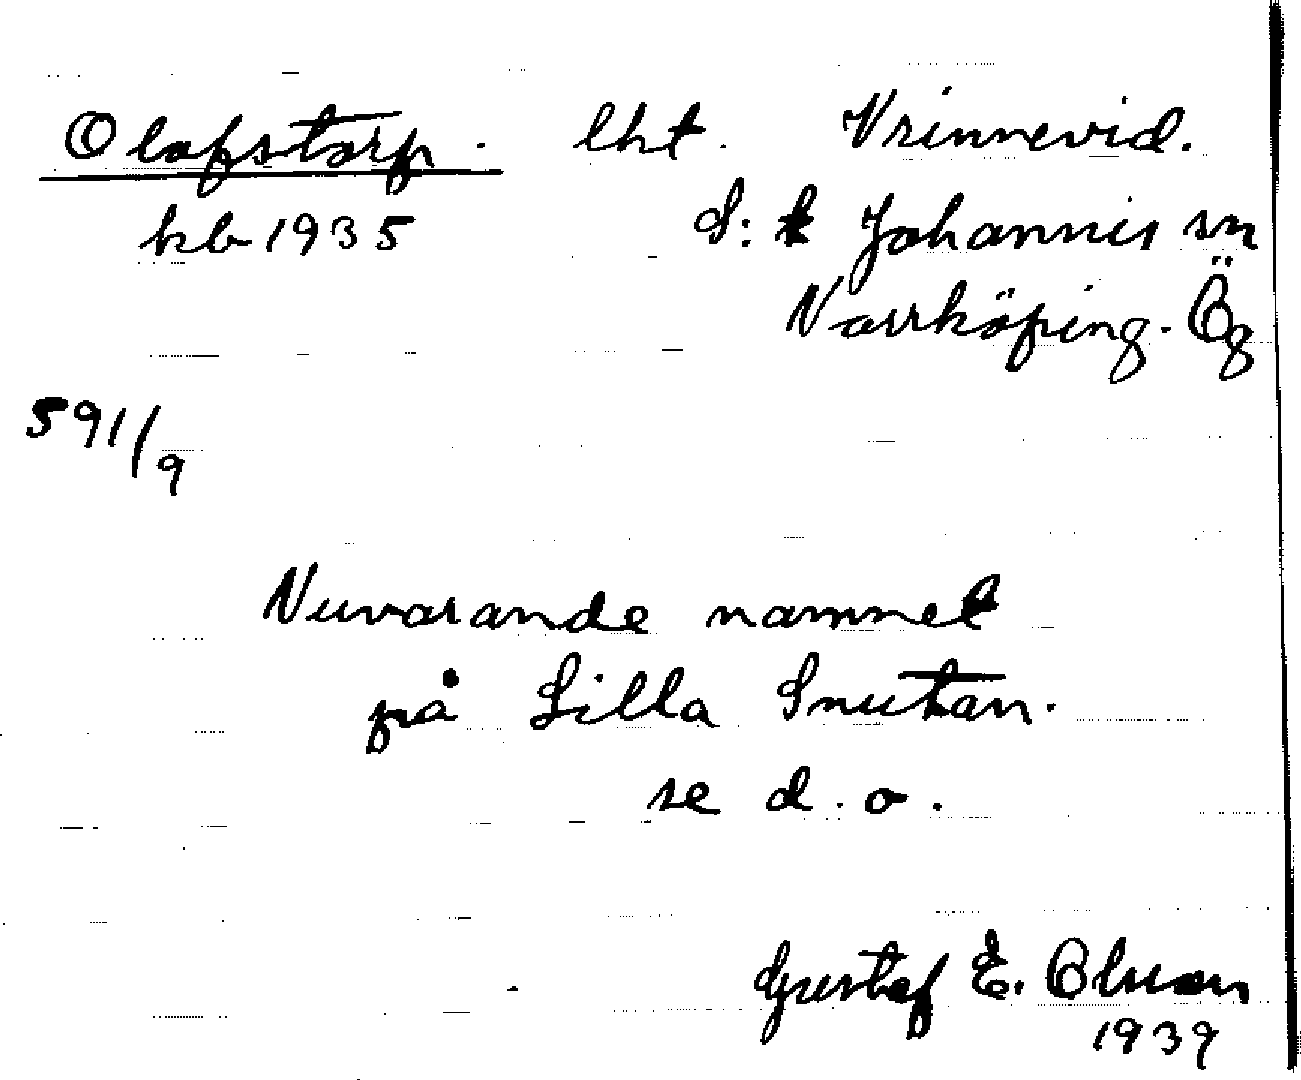 Olofstorp. lht. Vrinnevid.
kb 1935 S:t Johannis sn
Norrköping. Ög
591/9
Nuvarande namnet
på Lilla Snutan.
se d.o.
Gustaf E. Olsson
1939